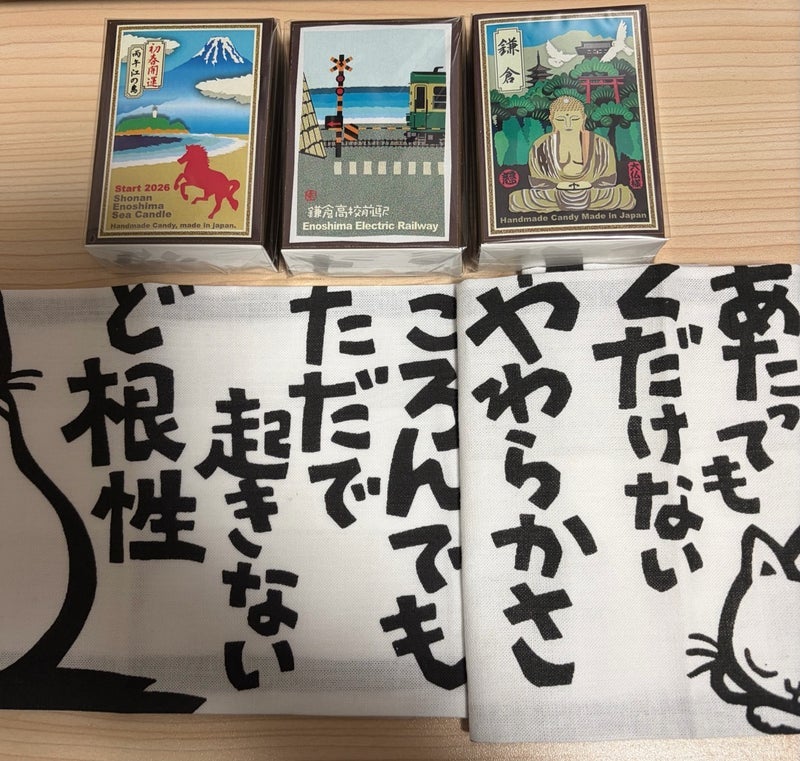 初春開運
丙午江の島
Start 2026
Shonan
Enoshima
Sea Candle
Handmade Candy, made in Japan.
鎌倉高校前駅
Enoshima Electric Railway
鎌倉
大仏様
Handmade Candy Made in Japan
あたっても
くだけない
やわらかさ
ころんでも
ただで
起きない
ど根性